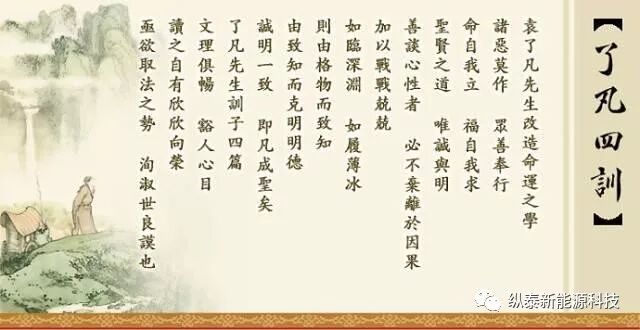 【了凡四訓】
袁了凡先生改造命運之學
諸惡莫作 眾善奉行
命自我立 福自我求
聖賢之道 唯誠與明
善談心性者 必不棄離於因果
加以戰戰兢兢
如臨深淵 如履薄冰
則由格物而致知
由致知而克明明德
誠明一致 即凡成聖矣
了凡先生訓子四篇
文理俱暢 豁人心目
讀之自有欣欣向榮
亟欲取法之勢 洵淑世良謨也
纵泰新能源科技